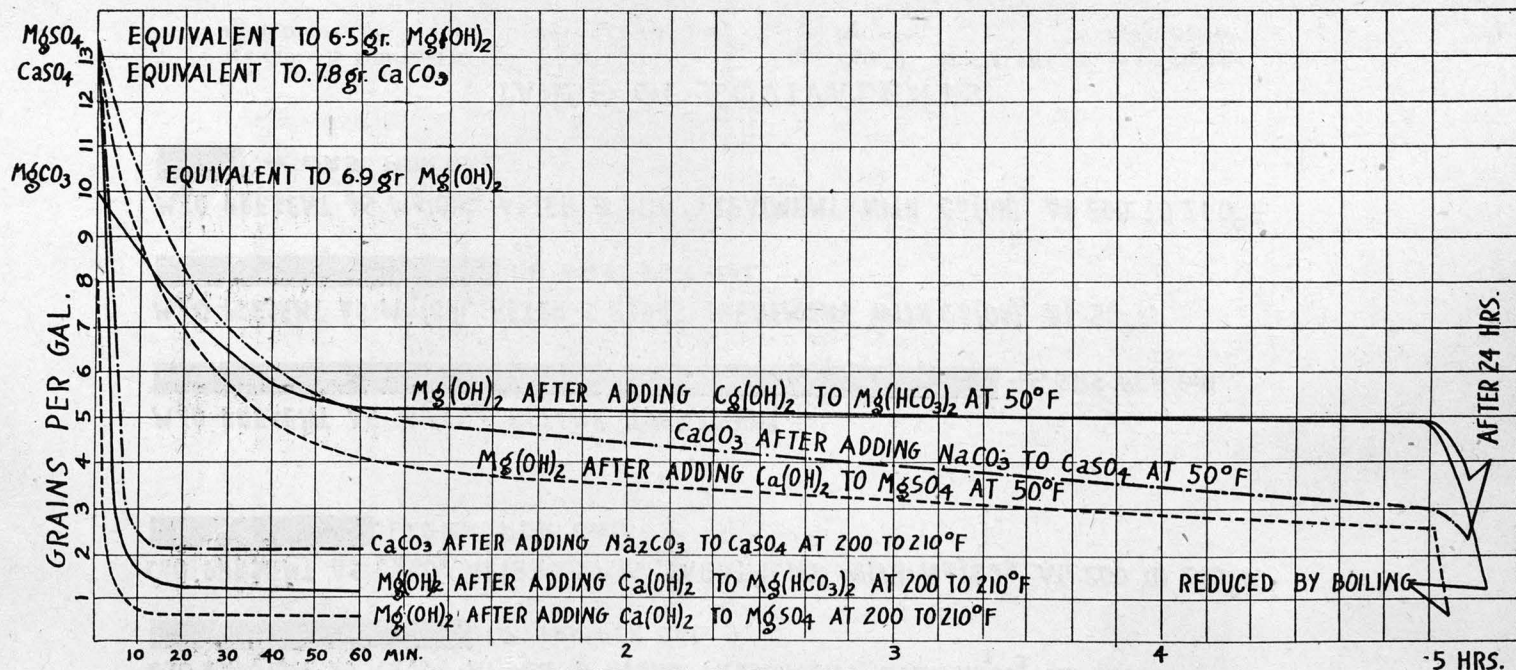 MgSO4 EQUIVALENT TO 6.5 gr. Mg(OH)2
CaSO4 EQUIVALENT TO 7.8 gr. CaCO3
MgCO3 EQUIVALENT TO 6.9 gr Mg(OH)2
13
12
11
10
9
8
7
6
5
4
3
2
1
GRAINS PER GAL.
Mg(OH)2 AFTER ADDING Cg(OH)2 TO Mg(HCO3)2 AT 50°F
CaCO3 AFTER ADDING NaCO3 TO CaSO4 AT 50°F
Mg(OH)2 AFTER ADDING Ca(OH)2 TO MgSO4 AT 50°F
CaCO3 AFTER ADDING Na2CO3 TO CaSO4 AT 200 TO 210°F
Mg(OH)2 AFTER ADDING Ca(OH)2 TO Mg(HCO3)2 AT 200 TO 210°F
Mg(OH)2 AFTER ADDING Ca(OH)2 TO MgSO4 AT 200 TO 210°F
REDUCED BY BOILING
AFTER 24 HRS.
10 20 30 40 50 60 MIN. 2 3 4 5 HRS.